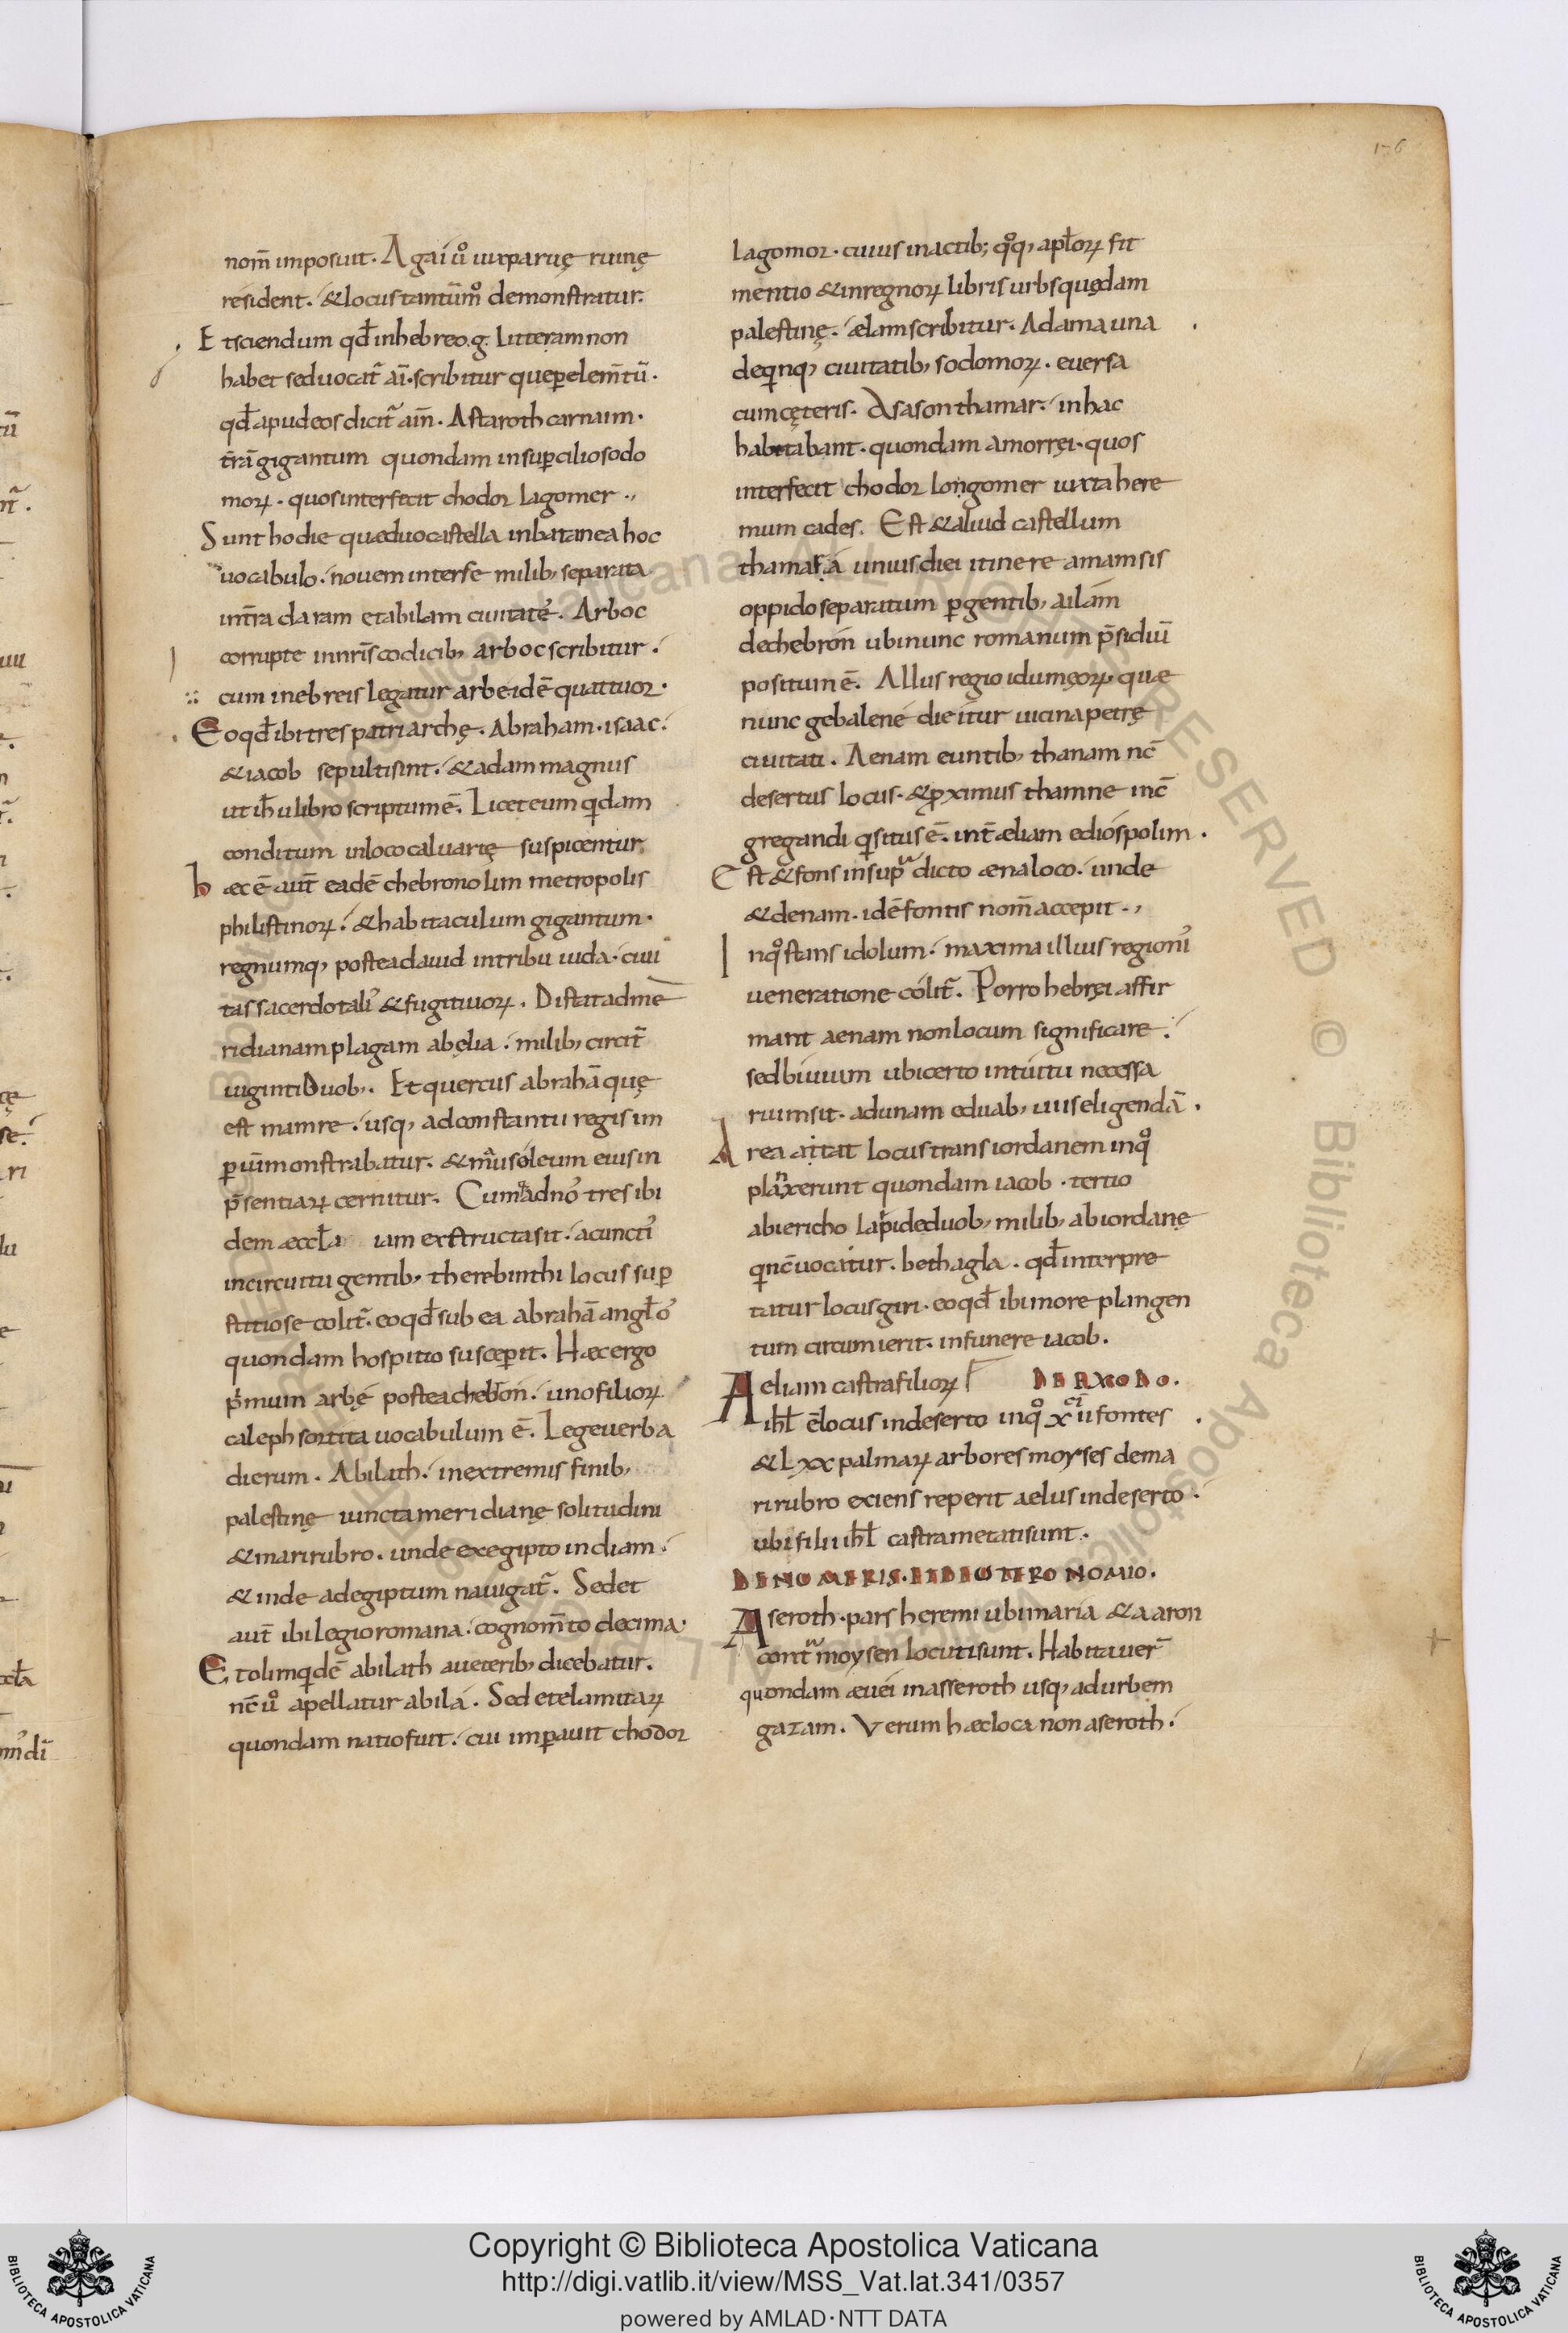 176
nom̄ imposuit. Agai ů iuxparuę ruinę
resident. & locus tantūm̊ demonstratur.
Et sciendum qđ in hebreo .g. litteram non
habet sed uocat̄ aī. scribitur que ꝑ elem̄tū.
qđ apud eos dicit̄ aiñ. Astaroth carnaim.
t̄rā gigantum quondam in suꝑcilio sodo
moꝝ. quos interfecit chodor lagomer.,
Sunt hodie quæ duo castella in batanea hoc
uocabulo. nouem inter se milib; separata
int̄ra daram et abilam ciuitate᷒. Arboc
corrupte in nrīs codicib; arboc scribitur.
cum in ebreis legatur arbe. idē quattuor.
Eo qđ ibi tres patriarchę. Abraham. isaac.
& iacob sepulti sint. & adam magnus
ut iħu libro scriptum ē. Licet eum qdam
conditum in loco caluarię suspicentur
hæc ē aut̄ eadē chebron olim metropolis
philistinoꝝ. & habitaculum gigantum.
regnumq; postea dauid in tribu iuda. ciui
tas sacerdotali᷒ & fugitiuoꝝ. Distat ad me
ridianam plagam ab ęlia. milib; circit̄
uiginti Duob;. Et quercus abrahā quę
est mamre. usq; ad constantii regis im
ꝑiū monstrabatur. & mausoleum eius in
p̄sentiaꝝ cernitur. Cumq; ad no᷒tres ibi
dem æccła iam exstructa sit. a cuncti᷒
in circuitu gentib; therebinthi locus suꝑ
stitiose colit̄. eo qđ sub ea abrahā angło᷒
quondam hospitio susceꝑit. Hæc ergo
p̍mum arbę́ postea chebron. uno filioꝝ
caleph sortita uocabulum ē. Lege uerba
dierum. Abilath. in extremis finib;
palestinę iuncta meridianę solitudini
& mari rubro. unde ex egipto in diam.
& inde ad egiptum nauigat̄. Sedet
aut̄ ibi legio romana. cognom̄to decima.
Et olim qdē abilath a ueterib; dicebatur.
nc̄ ů apellatur abila. Sed et elamitaꝝ
quondam natio fuit. cui imꝑauit chodor
lagomor. cuius in actib; q̊q; apłoꝝ fit
mentio & in regnoꝝ libris urbs quędam
palestinę. ælam scribitur. Adama una
de qnq; ciuitatib; sodomoꝝ. euersa
cum cęteris. Asason thamar. in hac
habitabant. quondam amorręi. quos
interfecit chodor longomer iuxta here
mum cades. Est & aliud castellum
thamara unius diei itinere a mamsis
oppido separatum ꝑgentib; ailam
de chebron ubi nunc romanum p̄sidiū
positum ē. Allus regio idumęoꝝ. quæ
nunc gebalene dicitur uicina petrę
ciuitati. Aenam euntib; thanam nc̄
desertus locus. & ꝓximus thamne inc̄
gregandi qsitus ē. int̄ æliam e diospolim.
Est & fons in supra dicto æna loco. unde
& denam. idē fontis nom̄ accepit.,
In q̊ stans idolum. maxima illius regioni᷒
ueneratione colit̄. Porro hebręi affir
mant aenam non locum significare.
sed biuium ubi certo intuitu necessa
rium sit. ad unam e duab; uiis eligendā.
Area attat locus trans iordanem in q̊
planxerunt quondam iacob. tertio
ab iericho lapide duob; milib; ab iordanę
q nc̄ uocatur. bethagla. qđ interpre
tatur locus giri. eo qđ ibi more plangen
tum circumierit. in funere iacob.
Aeliam castra filioꝝ DE EXODO.
iħł ē locus in deserto in q̊ xii fontes
& Lxx palmaꝝ arbores moyses de ma
ri rubro exiens reperit aelus in deserto.
ubi filii iħł castra metati sunt.
DE NUMERIS. ET DEUTERONOMIO.
Aseroth. pars heremi ubi maria & aaron
contra moysen locuti sunt. Habitauer̄
quondam æuei in asseroth usq; ad urbem
gazam. Verum hæc loca non aseroth.
Copyright © Biblioteca Apostolica Vaticana
http://digi.vatlib.it/view/MSS_Vat.lat.341/0357
powered by AMLAD·NTT DATA